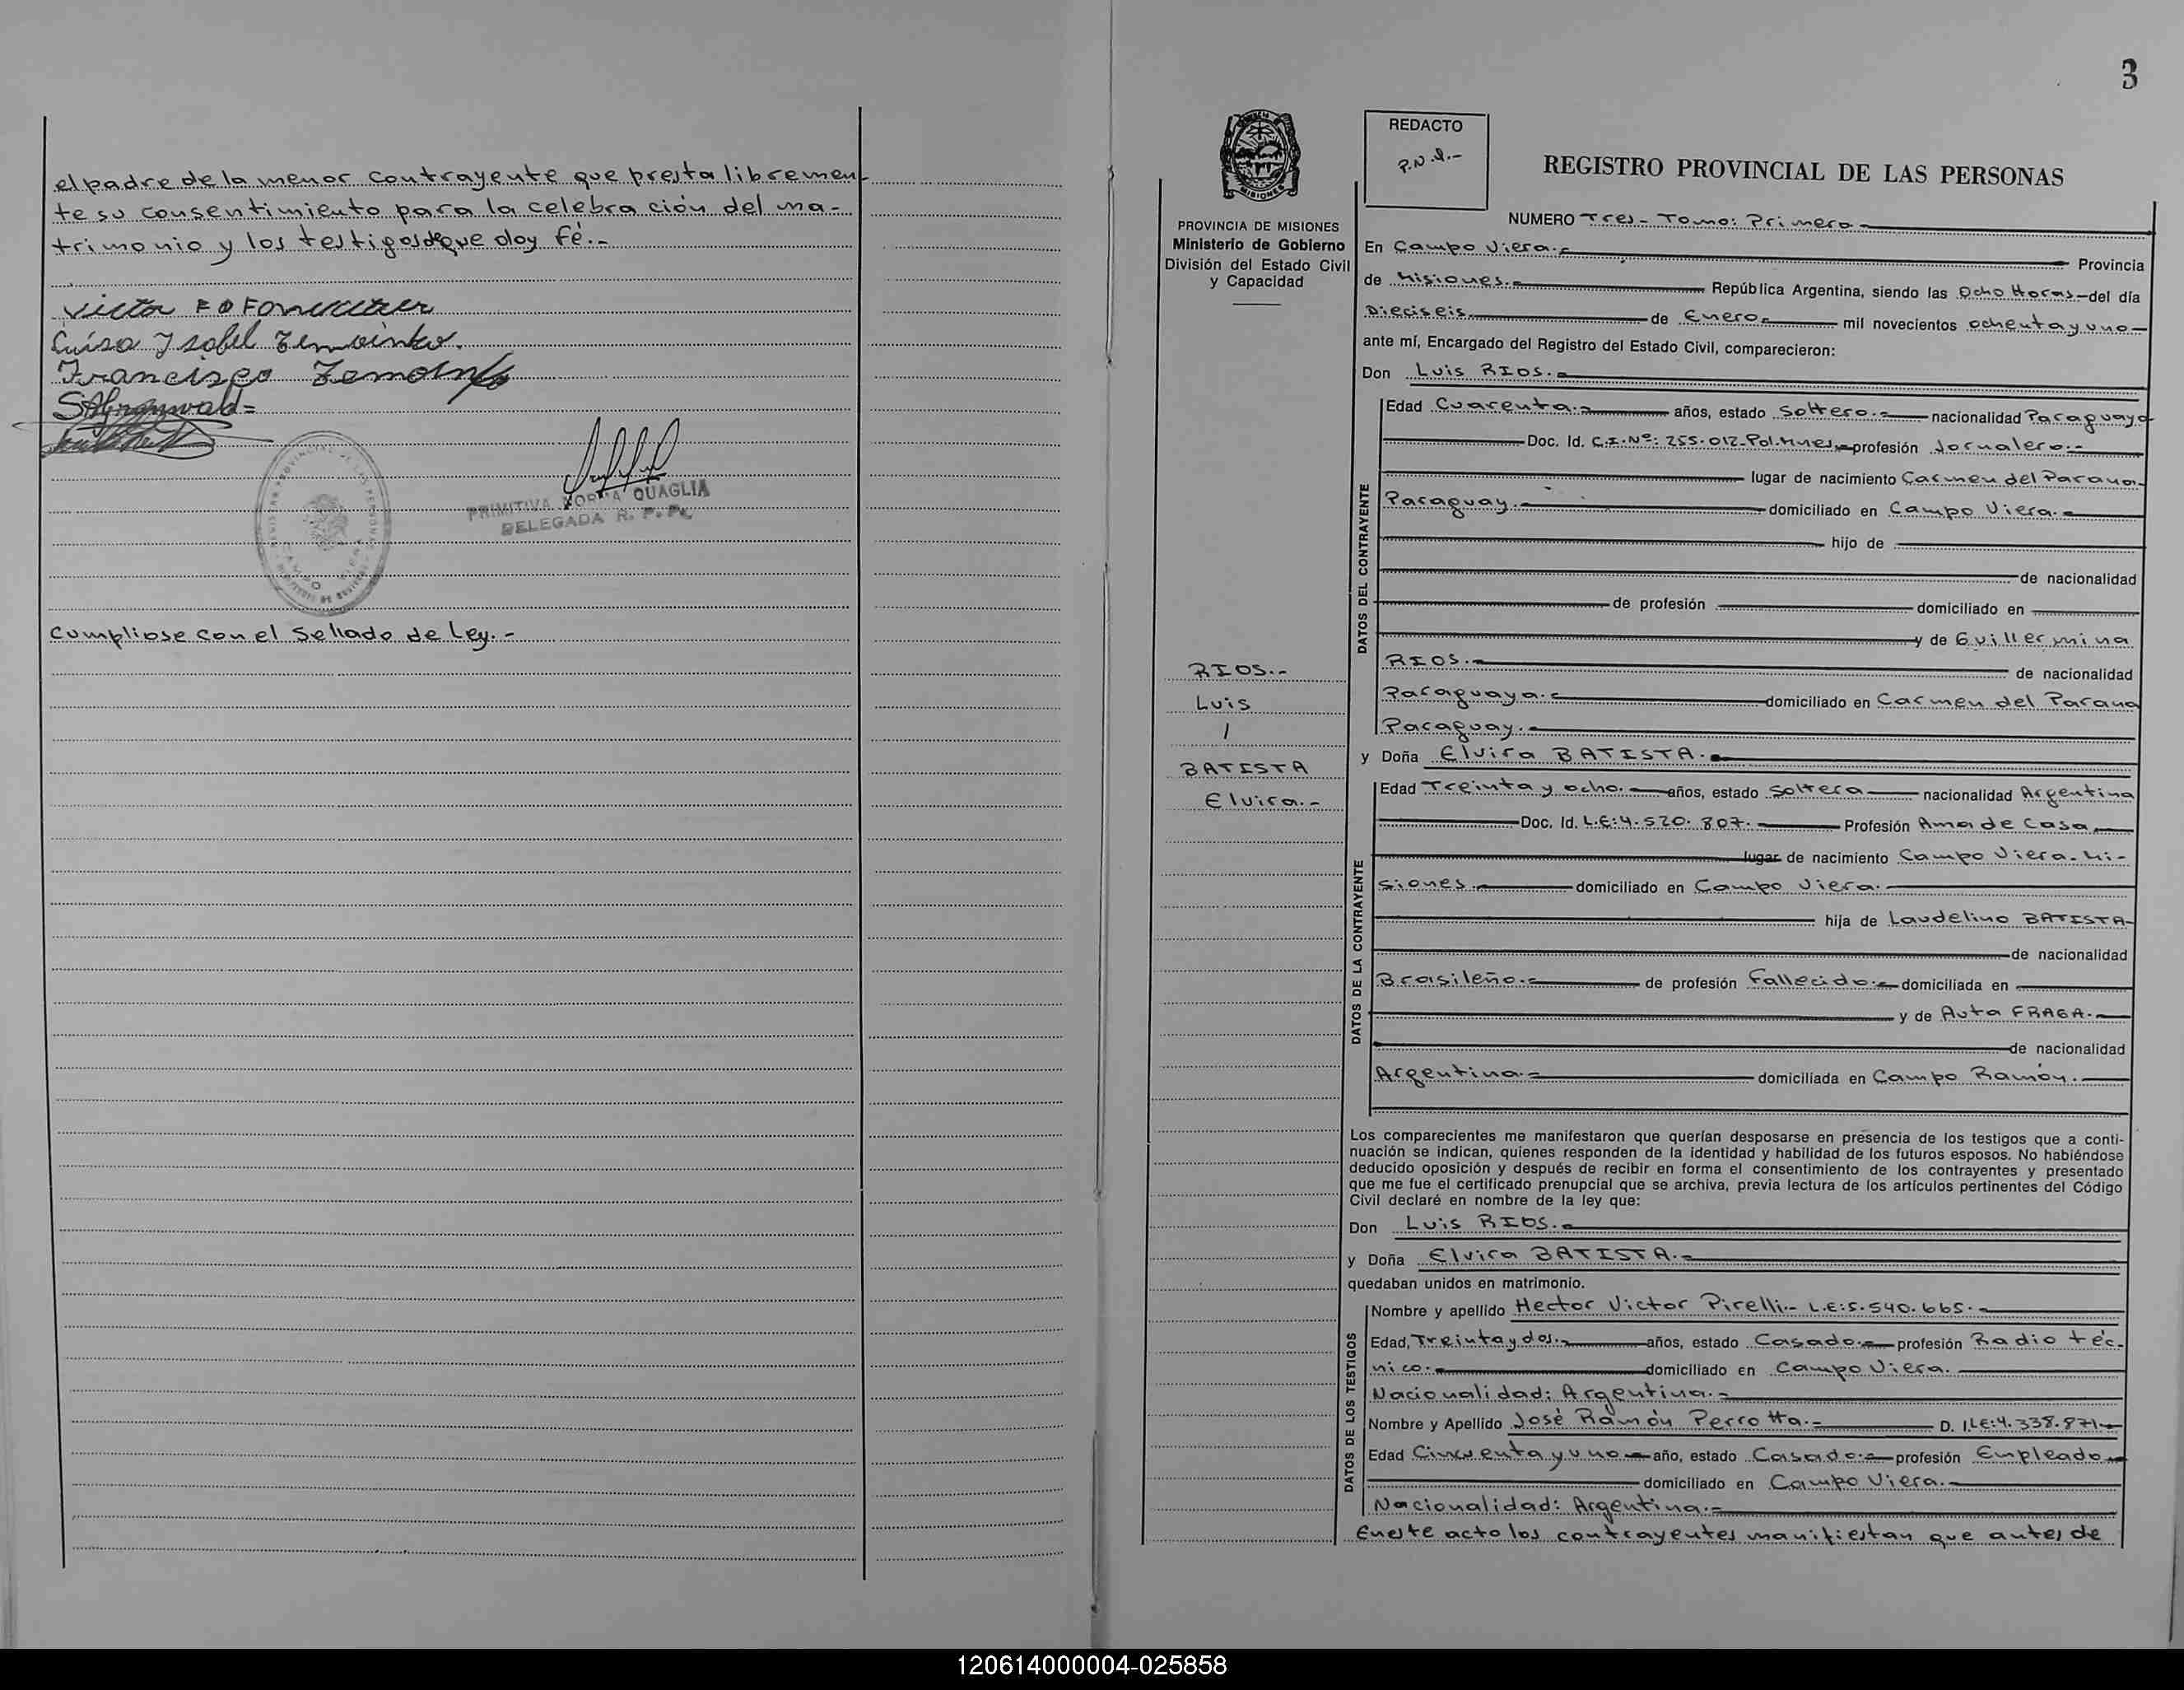 el padre de la menor contrayente que presta libremen-
te su consentimiento para la celebración del ma-
trimonio y los testigos de que doy fé.-
Luisa Ysabel
Francisco
PRIMITIVA NORMA QUAGLIA
DELEGADA R. P. P.
Cumpliose con el Sellado de Ley.-
3
REDACTO
P.N.Q.-
REGISTRO PROVINCIAL DE LAS PERSONAS
PROVINCIA DE MISIONES
Ministerio de Gobierno
División del Estado Civil
y Capacidad
RIOS.-
Luis
/
BATISTA
Elvira.-
NUMERO Tres- Tomo: Primero-
En Campo Viera.- Provincia
de Misiones.- República Argentina, siendo las Ocho Horas- del día
Dieciseis. de Enero- mil novecientos ochenta y uno-
ante mí, Encargado del Registro del Estado Civil, comparecieron:
Don Luis RIOS.-
DATOS DEL CONTRAYENTE
Edad Cuarenta.- años, estado Soltero.- nacionalidad Paraguaya
Doc. Id. C.I. Nº: 255.012-Pol. Mnes.- profesión Jornalero.-
lugar de nacimiento Carmen del Parana-
Paraguay.- domiciliado en Campo Viera.-
hijo de
de nacionalidad
de profesión domiciliado en
y de Guillermina
RIOS.- de nacionalidad
Paraguaya.- domiciliado en Carmen del Parana
Paraguay.-
y Doña Elvira BATISTA.-
DATOS DE LA CONTRAYENTE
Edad Treinta y ocho.- años, estado Soltera- nacionalidad Argentina
Doc. Id. L.E:4.520.807.- Profesión Ama de Casa
lugar de nacimiento Campo Viera- Mi-
siones.- domiciliado en Campo Viera.-
hija de Laudelino BATISTA-
de nacionalidad
Brasileño.- de profesión Fallecido.- domiciliada en
y de Auta FRAGA.-
de nacionalidad
Argentina.- domiciliada en Campo Ramón.-
Los comparecientes me manifestaron que querían desposarse en presencia de los testigos que a conti-
nuación se indican, quienes responden de la identidad y habilidad de los futuros esposos. No habiéndose
deducido oposición y después de recibir en forma el consentimiento de los contrayentes y presentado
que me fue el certificado prenupcial que se archiva, previa lectura de los artículos pertinentes del Código
Civil declaré en nombre de la ley que:
Don Luis RIOS.-
y Doña Elvira BATISTA.-
quedaban unidos en matrimonio.
DATOS DE LOS TESTIGOS
Nombre y apellido Hector Victor Pirelli.- L.E:5.540.665.-
Edad, Treinta y dos.- años, estado Casado.- profesión Radio téc-
nico.- domiciliado en Campo Viera.
Nacionalidad: Argentina.-
Nombre y Apellido José Ramón Perrotta.- D. I. LE:4.338.871.-
Edad Cincuenta y uno- año, estado Casado.- profesión Empleado-
domiciliado en Campo Viera.-
Nacionalidad: Argentina.-
En este acto los contrayentes manifiestan que antes de
120614000004-025858